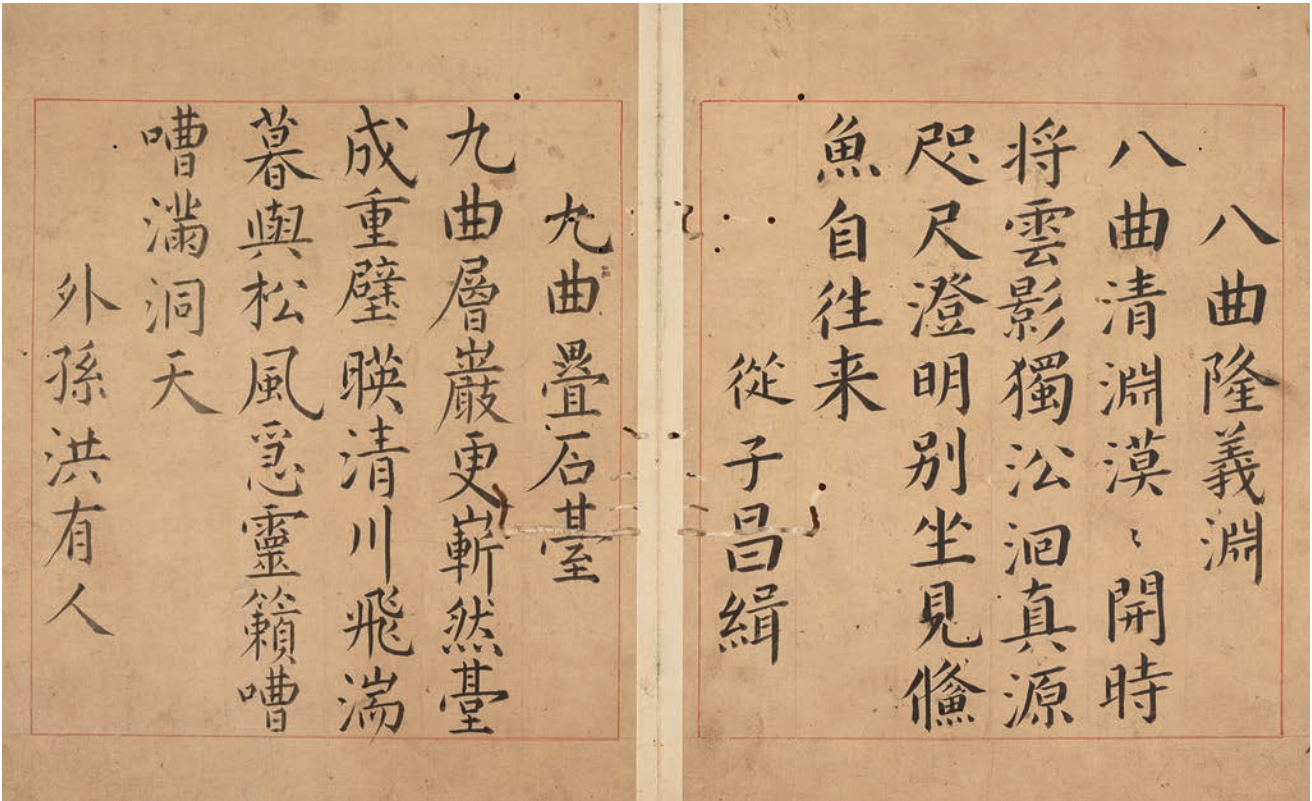 八曲隆義淵
八曲清淵漠〻開時
将雲影獨㳂洄真源
咫尺澄明别坐見鯈
魚自徃来
從子昌緝
九曲疊石臺
九曲層巖更嶄然臺
成重壁暎清川飛湍
暮與松風急靈籟嘈
嘈滿洞天
外孫洪有人